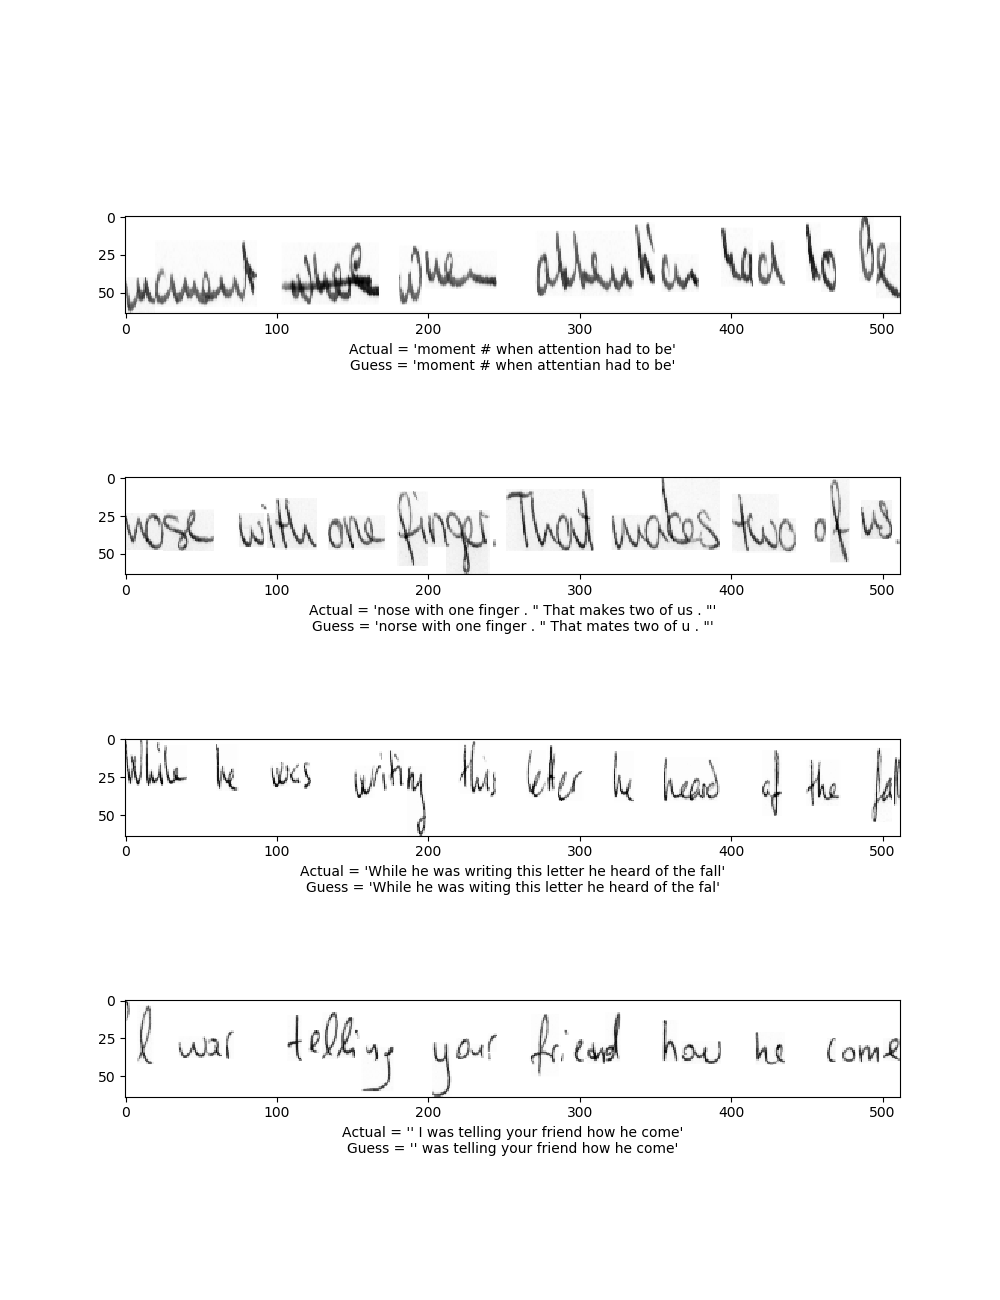 0
25
50
moment # when attention had to be
0 100 200 300 400 500
Actual = 'moment # when attention had to be'
Guess = 'moment # when attentian had to be'
0
25
50
nose with one finger. That makes two of us.
0 100 200 300 400 500
Actual = 'nose with one finger . " That makes two of us . "'
Guess = 'norse with one finger . " That mates two of u . "'
0
25
50
While he was writing this letter he heard of the fall
0 100 200 300 400 500
Actual = 'While he was writing this letter he heard of the fall'
Guess = 'While he was witing this letter he heard of the fal'
0
25
50
' I was telling your friend how he come
0 100 200 300 400 500
Actual = '' I was telling your friend how he come'
Guess = '' was telling your friend how he come'